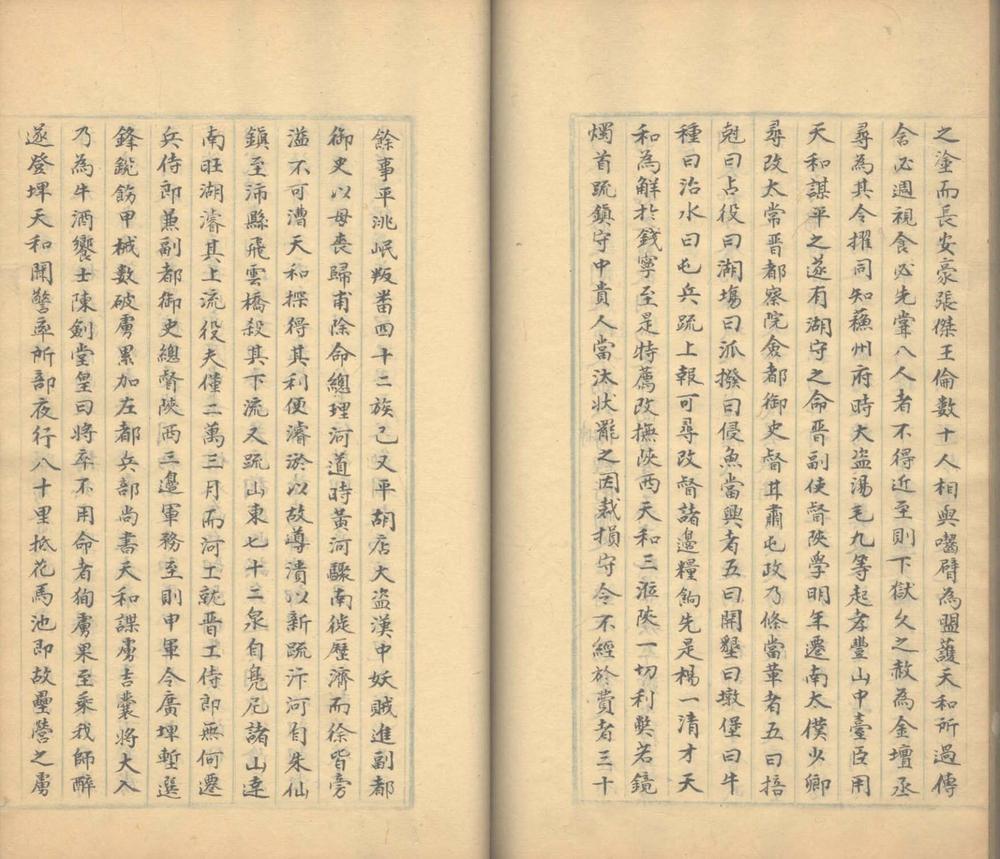 之塗而長安豪張傑王倫數十人相與嚙臂為盟護天和所過傳
舍必週視食必先嘗八人者不得近至則下獄久之赦為金壇丞
尋為其令擢同知蘓州府時大盜湯毛九等起孝豐山中臺臣用
天和謀平之遂有湖守之命晉副使督陜學明年遷南太僕少卿
尋改太常晉都察院僉都御史督甘肅屯政乃條當革者五曰掊
尅曰占役曰湖塲曰派撥曰侵魚當興者五曰開墾曰墩堡曰牛
種曰治水曰屯兵疏上報可尋改督諸邊糧餉先是楊一清才天
和為解於錢寧至是特薦改撫陜西天和三涖陜一切利獘若鏡
燭首疏鎮守中貴人當汰狀罷之因裁損守令不經於費者三十
餘事平洮岷叛番四十二族己又平胡店大盜漢中妖賊進副都
御史以母喪歸甫除命總理河道時黃河驟南徙歷濟而徐皆旁
溢不可漕天和探得其利便濬淤以故導潰以新疏汴河自朱仙
鎮至沛縣飛雲橋殺其下流又疏山東七十二泉自鳧尼諸山達
南旺湖濬其上流役夫僅二萬三月而河工就晉工侍郎無何遷
兵侍郎兼副都御史總督陜西三邊軍務至則申軍令廣埤塹選
鋒銳飭甲械數破虜累加左都兵部尚書天和諜虜吉囊將大入
乃為牛酒饗士陳劍堂皇曰將卒不用命者狥虜果至乘我師醉
遂登埤天和聞警率所部夜行八十里抵花馬池即故壘營之虜